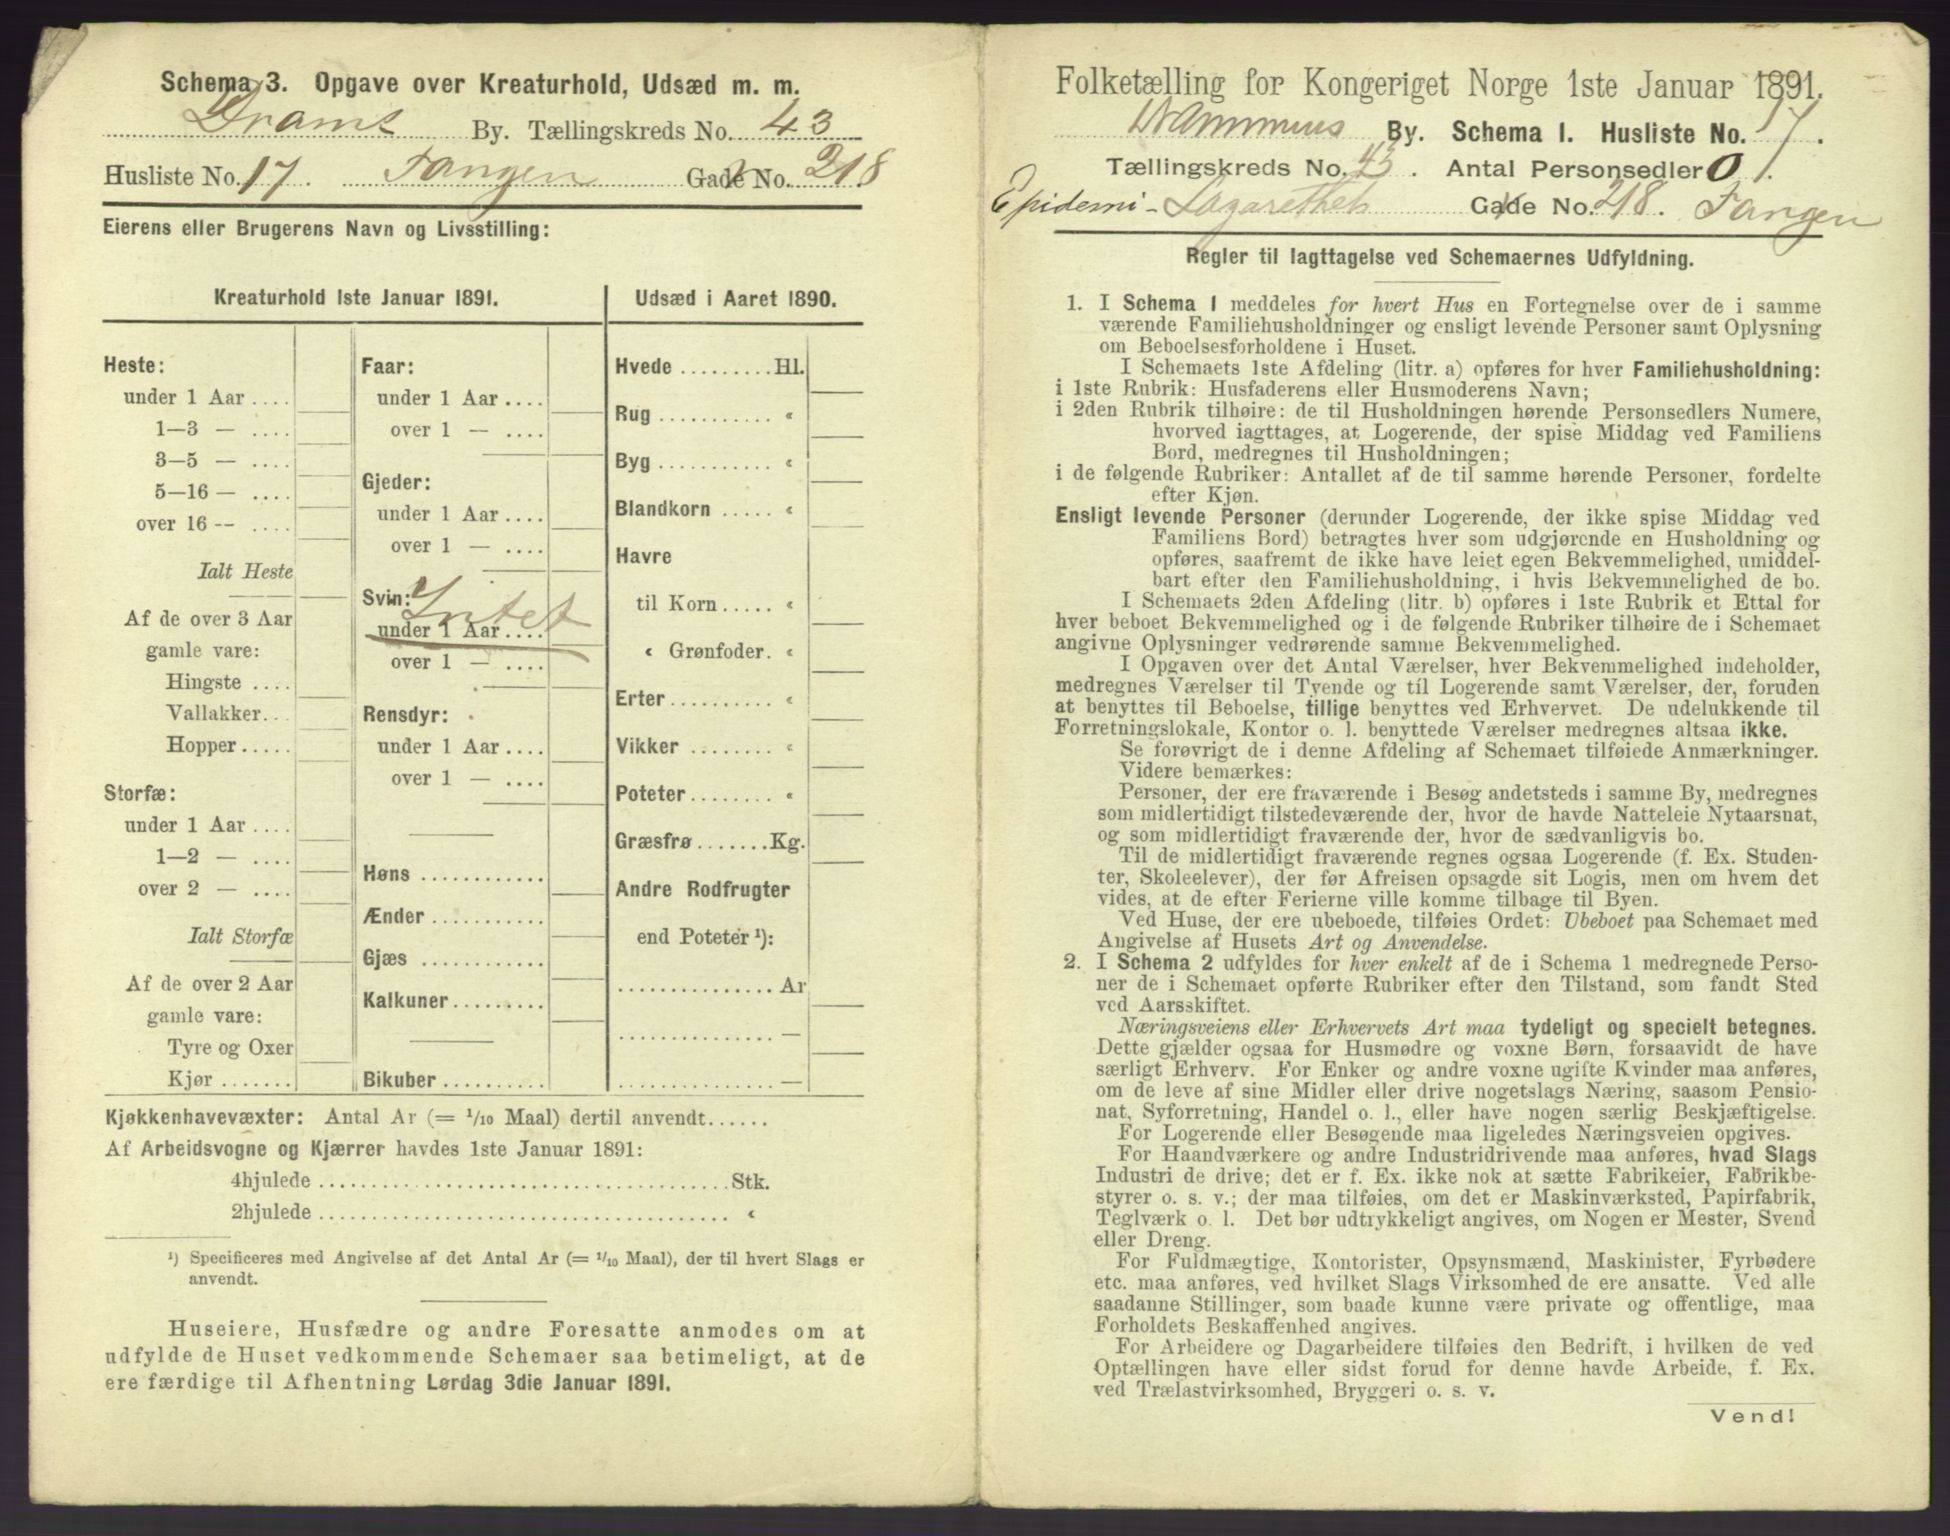 Schema 3. Opgave over Kreaturhold, Udsæd m. m.
Drams By. Tællingskreds No. 43
Husliste No. 17. Tangen Gade No. 218
Eierens eller Brugerens Navn og Livsstilling:
Kreaturhold 1ste Januar 1891.
Heste:
under 1 Aar ....
1—3 — ....
3—5 — ....
5—16 — ....
over 16 — ....
Ialt Heste
Af de over 3 Aar
gamle vare:
Hingste ....
Vallakker...
Hopper.....
Storfæ:
under 1 Aar ....
1—2 — ....
over 2 — ....
Ialt Storfæ
Af de over 2 Aar
gamle vare:
Tyre og Oxer
Kjør .......
Faar:
under 1 Aar ....
over 1 — ....
Gjeder:
under 1 Aar ....
over 1 — ....
Svin: Intet
under 1 Aar ....
over 1 — ....
Rensdyr:
under 1 Aar ....
over 1 — ....
Høns ............
Ænder ...........
Gjæs ............
Kalkuner.........
Bikuber ..........
Udsæd i Aaret 1890.
Hvede .........Hl.
Rug ........... «
Byg ........... «
Blandkorn ..... «
Havre
til Korn ..... «
« Grønfoder. «
Erter.......... «
Vikker ........ «
Poteter........ «
Græsfrø .......Kg.
Andre Rodfrugter
end Poteter ¹):
............... Ar
............... —
............... —
Kjøkkenhavevæxter: Antal Ar (= 1/10 Maal) dertil anvendt......
Af Arbeidsvogne og Kjærrer havdes 1ste Januar 1891:
4hjulede ....................................... Stk.
2hjulede ....................................... «
¹) Specificeres med Angivelse af det Antal Ar (= 1/10 Maal), der til hvert Slags er
anvendt.
Huseiere, Husfædre og andre Foresatte anmodes om at
udfylde de Huset vedkommende Schemaer saa betimeligt, at de
ere færdige til Afhentning Lørdag 3die Januar 1891.
Folketælling for Kongeriget Norge 1ste Januar 1891.
Drammens By. Schema 1. Husliste No. 17.
Tællingskreds No. 43. Antal Personsedler 0.
Epidemi-Lazarethet Gade No. 218. Tangen
Regler til Iagttagelse ved Schemaernes Udfyldning.
1. I Schema 1 meddeles for hvert Hus en Fortegnelse over de i samme
værende Familiehusholdninger og ensligt levende Personer samt Oplysning
om Beboelsesforholdene i Huset.
I Schemaets 1ste Afdeling (litr. a) opføres for hver Familiehusholdning:
i 1ste Rubrik: Husfaderens eller Husmoderens Navn;
i 2den Rubrik tilhøire: de til Husholdningen hørende Personsedlers Numere,
hvorved iagttages, at Logerende, der spise Middag ved Familiens
Bord, medregnes til Husholdningen;
i de følgende Rubriker: Antallet af de til samme hørende Personer, fordelte
efter Kjøn.
Ensligt levende Personer (derunder Logerende, der ikke spise Middag ved
Familiens Bord) betragtes hver som udgjørende en Husholdning og
opføres, saafremt de ikke have leiet egen Bekvemmelighed, umiddel-
bart efter den Familiehusholdning, i hvis Bekvemmelighed de bo.
I Schemaets 2den Afdeling (litr. b) opføres i 1ste Rubrik et Ettal for
hver beboet Bekvemmelighed og i de følgende Rubriker tilhøire de i Schemaet
angivne Oplysninger vedrørende samme Bekvemmelighed.
I Opgaven over det Antal Værelser, hver Bekvemmelighed indeholder,
medregnes Værelser til Tyende og til Logerende samt Værelser, der, foruden
at benyttes til Beboelse, tillige benyttes ved Erhvervet. De udelukkende til
Forretningslokale, Kontor o. l. benyttede Værelser medregnes altsaa ikke.
Se forøvrigt de i denne Afdeling af Schemaet tilføiede Anmærkninger.
Videre bemærkes:
Personer, der ere fraværende i Besøg andetsteds i samme By, medregnes
som midlertidigt tilstedeværende der, hvor de havde Natteleie Nytaarsnat,
og som midlertidigt fraværende der, hvor de sædvanligvis bo.
Til de midlertidigt fraværende regnes ogsaa Logerende (f. Ex. Studen-
ter, Skoleelever), der før Afreisen opsagde sit Logis, men om hvem det
vides, at de efter Ferierne ville komme tilbage til Byen.
Ved Huse, der ere ubeboede, tilføies Ordet: Ubeboet paa Schemaet med
Angivelse af Husets Art og Anvendelse.
2. I Schema 2 udfyldes for hver enkelt af de i Schema 1 medregnede Perso-
ner de i Schemaet opførte Rubriker efter den Tilstand, som fandt Sted
ved Aarsskiftet.
Næringsveiens eller Erhvervets Art maa tydeligt og specielt betegnes.
Dette gjælder ogsaa for Husmødre og voxne Børn, forsaavidt de have
særligt Erhverv. For Enker og andre voxne ugifte Kvinder maa anføres,
om de leve af sine Midler eller drive nogetslags Næring, saasom Pensio-
nat, Syforretning, Handel o. l., eller have nogen særlig Beskjæftigelse.
For Logerende eller Besøgende maa ligeledes Næringsveien opgives.
For Haandværkere og andre Industridrivende maa anføres, hvad Slags
Industri de drive; det er f. Ex. ikke nok at sætte Fabrikeier, Fabrikbe-
styrer o. s. v.; der maa tilføies, om det er Maskinværksted, Papirfabrik,
Teglværk o. l. Det bør udtrykkeligt angives, om Nogen er Mester, Svend
eller Dreng.
For Fuldmægtige, Kontorister, Opsynsmænd, Maskinister, Fyrbødere
etc. maa anføres, ved hvilket Slags Virksomhed de ere ansatte. Ved alle
saadanne Stillinger, som baade kunne være private og offentlige, maa
Forholdets Beskaffenhed angives.
For Arbeidere og Dagarbeidere tilføies den Bedrift, i hvilken de ved
Optællingen have eller sidst forud for denne havde Arbeide, f. Ex.
ved Trælastvirksomhed, Bryggeri o. s. v.
Vend!